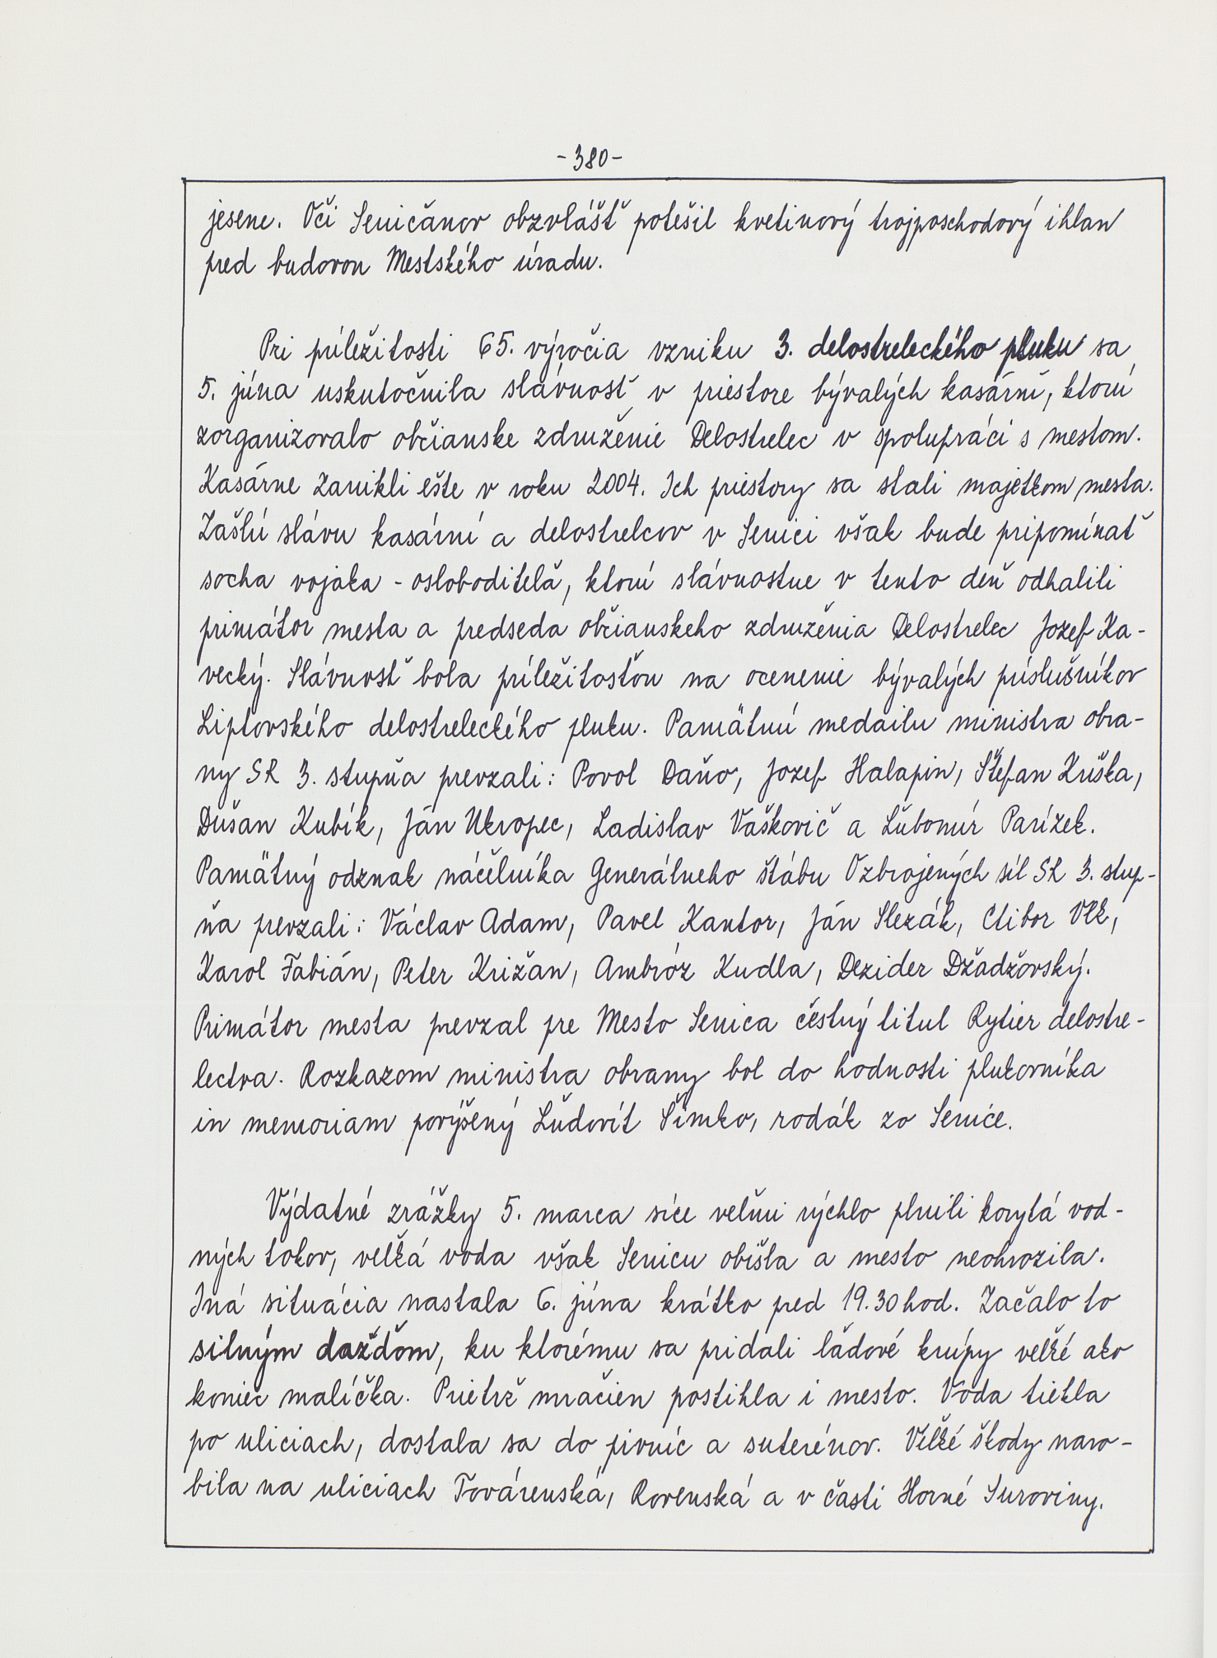 -380-
jesene. Oči Seničanov obzvlášť potešil kvetinový trojposchodový ihlan
pred budovou Mestského úradu.
Pri príležitosti 65. výročia vzniku 3. delostreleckého pluku sa
5. júna uskutočnila slávnosť v priestore bývalých kasární, ktorú
zorganizovalo občianske združenie Delostrelec v spolupráci s mestom.
Kasárne zanikli ešte v roku 2004. Ich priestory sa stali majetkom mesta.
Zašlú slávu kasární a delostrelcov v Senici však bude pripomínať
socha vojaka - osloboditeľa, ktorú slávnostne v tento deň odhalili
primátor mesta a predseda občianskeho združenia Delostrelec Jozef Ka-
vecký. Slávnosť bola príležitosťou na ocenenie bývalých príslušníkov
Liptovského delostreleckého pluku. Pamätnú medailu ministra obra-
ny SR 3. stupňa prevzali: Povol Daňo, Jozef Halapin, Štefan Kriška,
Dušan Kubík, Ján Ukropec, Ladislav Vaškovič a Ľubomír Parízek.
Pamätný odznak náčelníka Generálneho štábu Ozbrojených síl SR 3. stup-
ňa prevzali: Václav Adam, Pavel Kantor, Ján Slezák, Ctibor Vlk,
Karol Fabián, Peter Križan, Ambróz Kudla, Dezider Džadžovský.
Primátor mesta prevzal pre Mesto Senica čestný titul Rytier delostre-
lectva. Rozkazom ministra obrany bol do hodnosti plukovníka
in memoriam povýšený Ľudovít Šimko, rodák zo Senice.
Výdatné zrážky 5. marca síce veľmi rýchlo plnili korytá vod-
ných tokov, veľká voda však Senicu obišla a mesto neohrozila.
Iná situácia nastala 6. júna krátko pred 19.30 hod. Začalo to
silným dažďom, ku ktorému sa pridali ľadové krúpy veľké ako
koniec malíčka. Prietrž mračien postihla i mesto. Voda tiekla
po uliciach, dostala sa do pivníc a suterénov. Veľké škody naro-
bila na uliciach Továrenská, Rovenská a v časti Horné Suroviny.